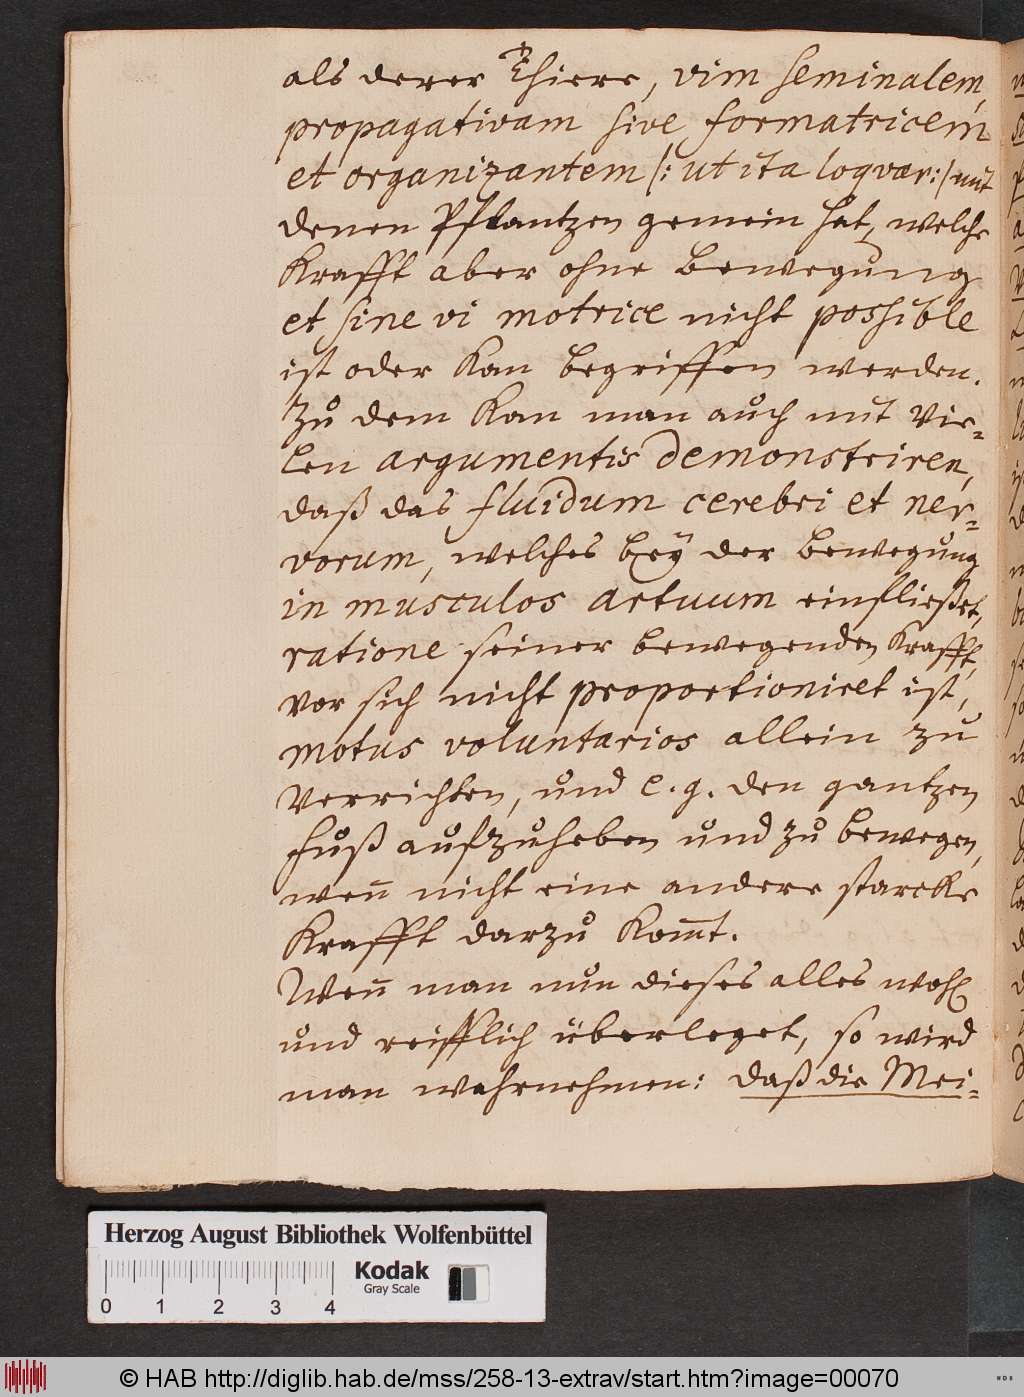 als derer Thiere, vim seminalem,
propagativam sive formatricem
et organizantem /: ut ita loqvar :/ mit
denen Pflantzen gemein hat, welche
Krafft aber ohne Bewegung
et sine vi motrice nicht possible
ist oder kan begriffen werden.
Zu dem kan man auch mit vie-
len argumentis demonstriren,
daß das fluidum cerebri et ner-
vorum, welches bey der Bewegung
in musculos artuum einfließet,
ratione seiner bewegenden Krafft,
vor sich nicht proportioniret ist,
motus voluntarios allein zu
verrichten, und e. g. den gantzen
Fuß aufzuheben und zu bewegen,
weñ nicht eine andere starcke
Krafft darzu kom̃t.
Weñ man nun dieses alles wohl
und reifflich überleget, so wird
man wahrnehmen: daß die Mei-
Herzog August Bibliothek Wolfenbüttel
Kodak
Gray Scale
0 1 2 3 4
© HAB http://diglib.hab.de/mss/258-13-extrav/start.htm?image=00070